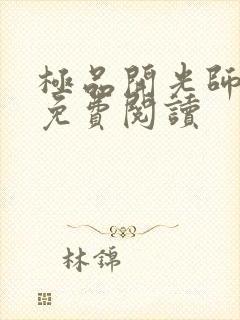 極品開光師
免費閱讀
林錦